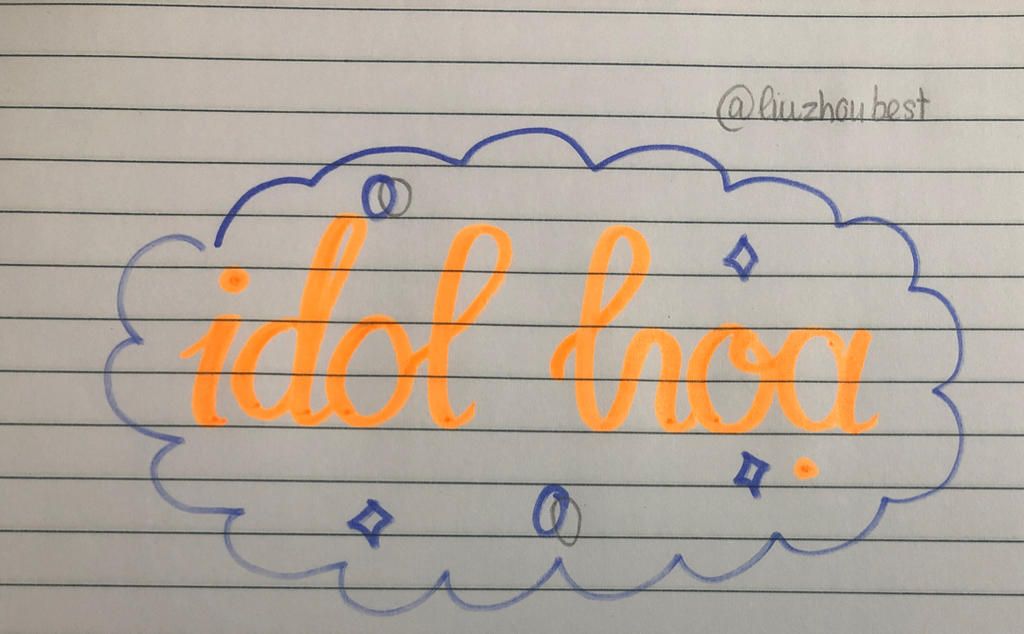 @liuzhoubest
idol hoạ